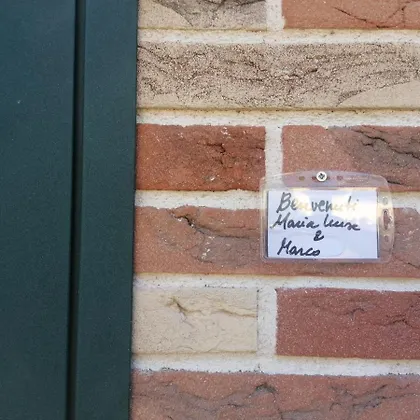 Benvenuti
Maria Luisa
&
Marco